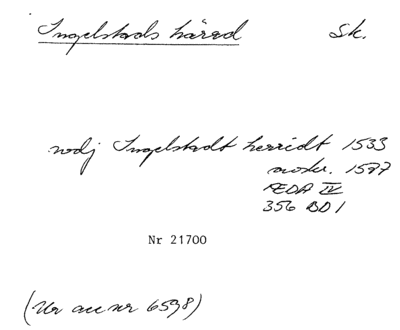 Ingelstads härad Sk.
nodj Ingelstadt herridt 1533
avskr. 1597
ÆDA IV
356 BD 1
Nr 21700
(Ur acc nr 6598)